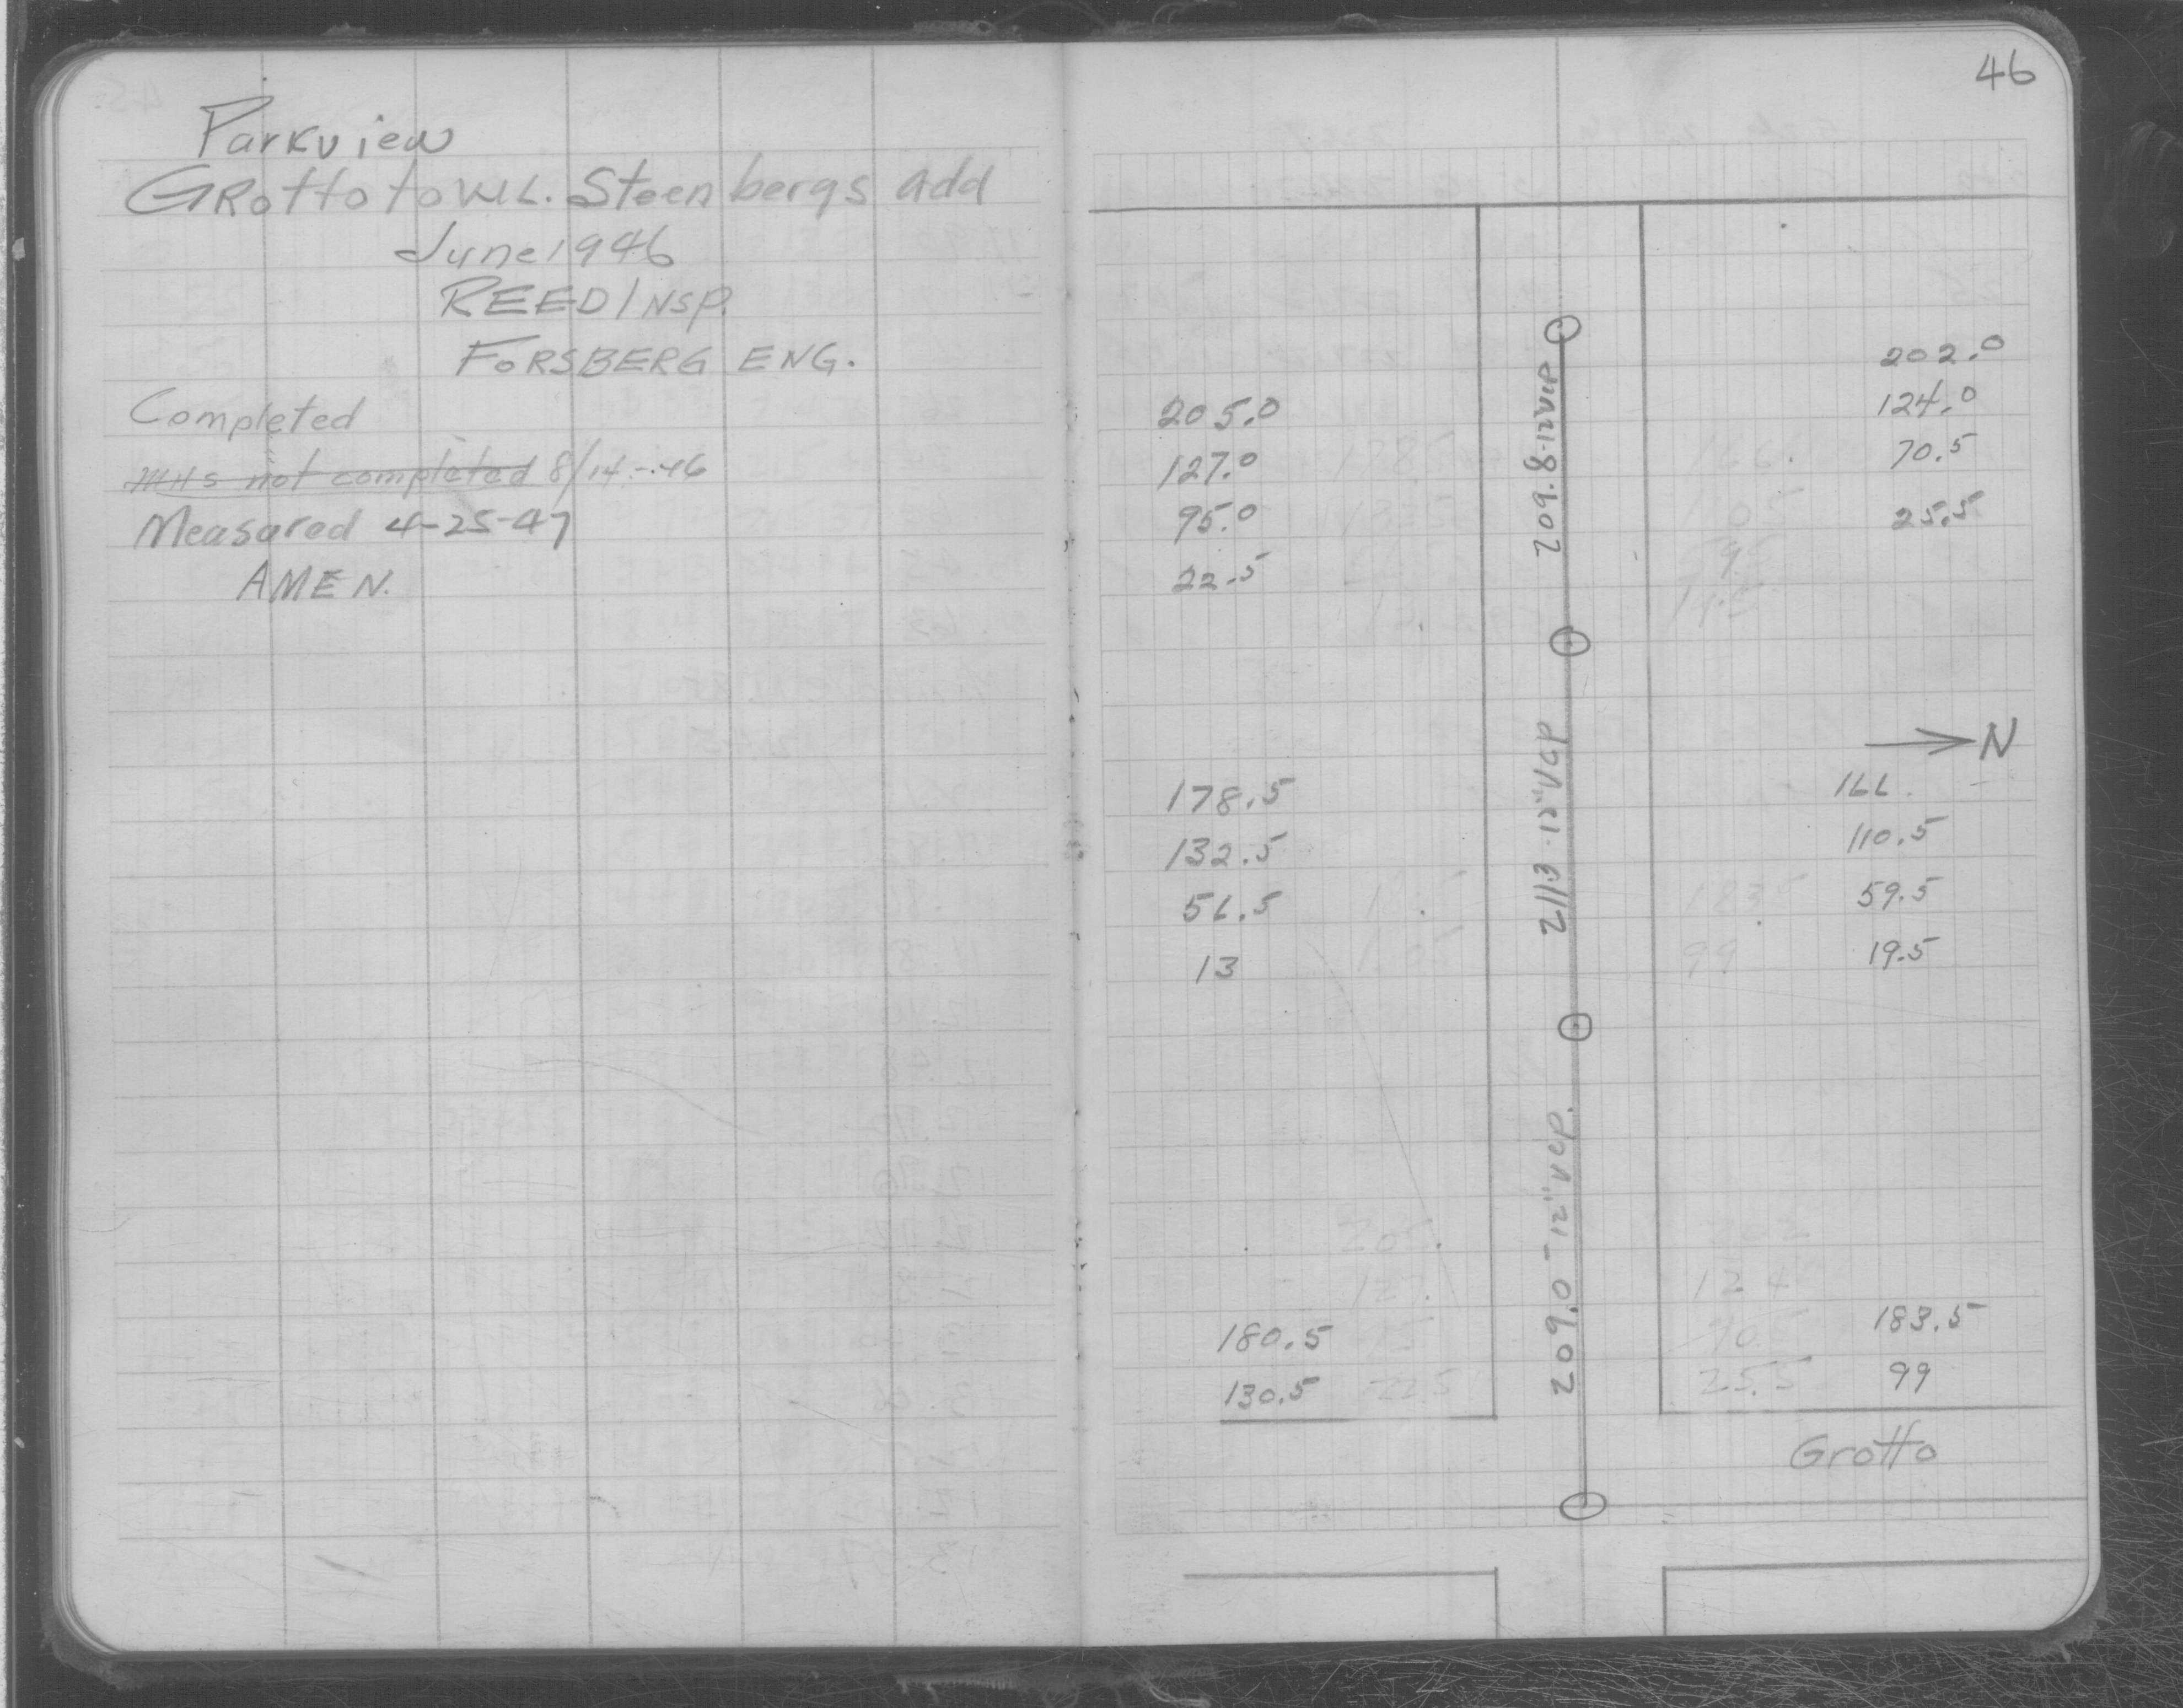 46
Parkview
GRotto to W.L. Steenbergs add
June 1946
REED INSP.
FORSBERG ENG.
Completed
MHs not completed 8/14-46
Measured 4-25-47
AMEN.
209.8-12"VCP
202.0
124.0
70.5
25.5
205.0
127.0
95.0
22.5
N
211.3-12"VCP
178.5
132.5
56.5
13
166.
110.5
59.5
19.5
209.0-12"VCP.
180.5
130.5
183.5
99
205.
127.
22.5
124
70.5
25.5
99
Grotto